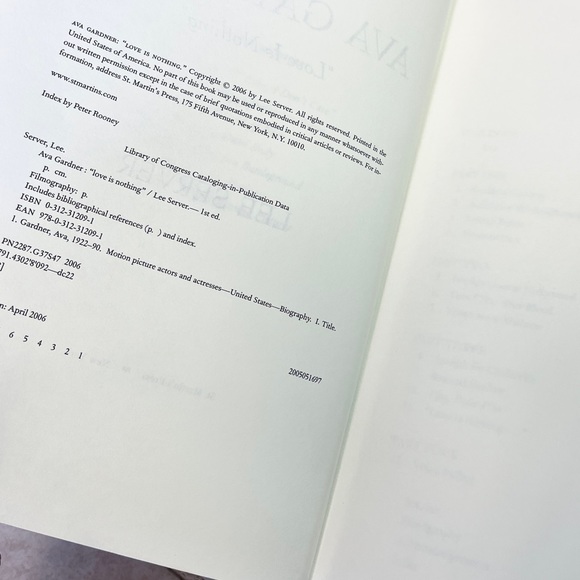 AVA GARDNER: "LOVE IS NOTHING." Copyright © 2006 by Lee Server. All rights reserved. Printed in the
United States of America. No part of this book may be used or reproduced in any manner whatsoever with-
out written permission except in the case of brief quotations embodied in critical articles or reviews. For in-
formation, address St. Martin's Press, 175 Fifth Avenue, New York, N.Y. 10010.
www.stmartins.com
Index by Peter Rooney
Library of Congress Cataloging-in-Publication Data
Server, Lee.
Ava Gardner : "love is nothing" / Lee Server.—1st ed.
p. cm.
Filmography: p.
Includes bibliographical references (p. ) and index.
ISBN 0-312-31209-1
EAN 978-0-312-31209-1
1. Gardner, Ava, 1922–90. Motion picture actors and actresses—United States—Biography. I. Title.
PN2287.G37S47 2006
791.4302'8'092—dc22
]
2005051697
n: April 2006
6 5 4 3 2 1